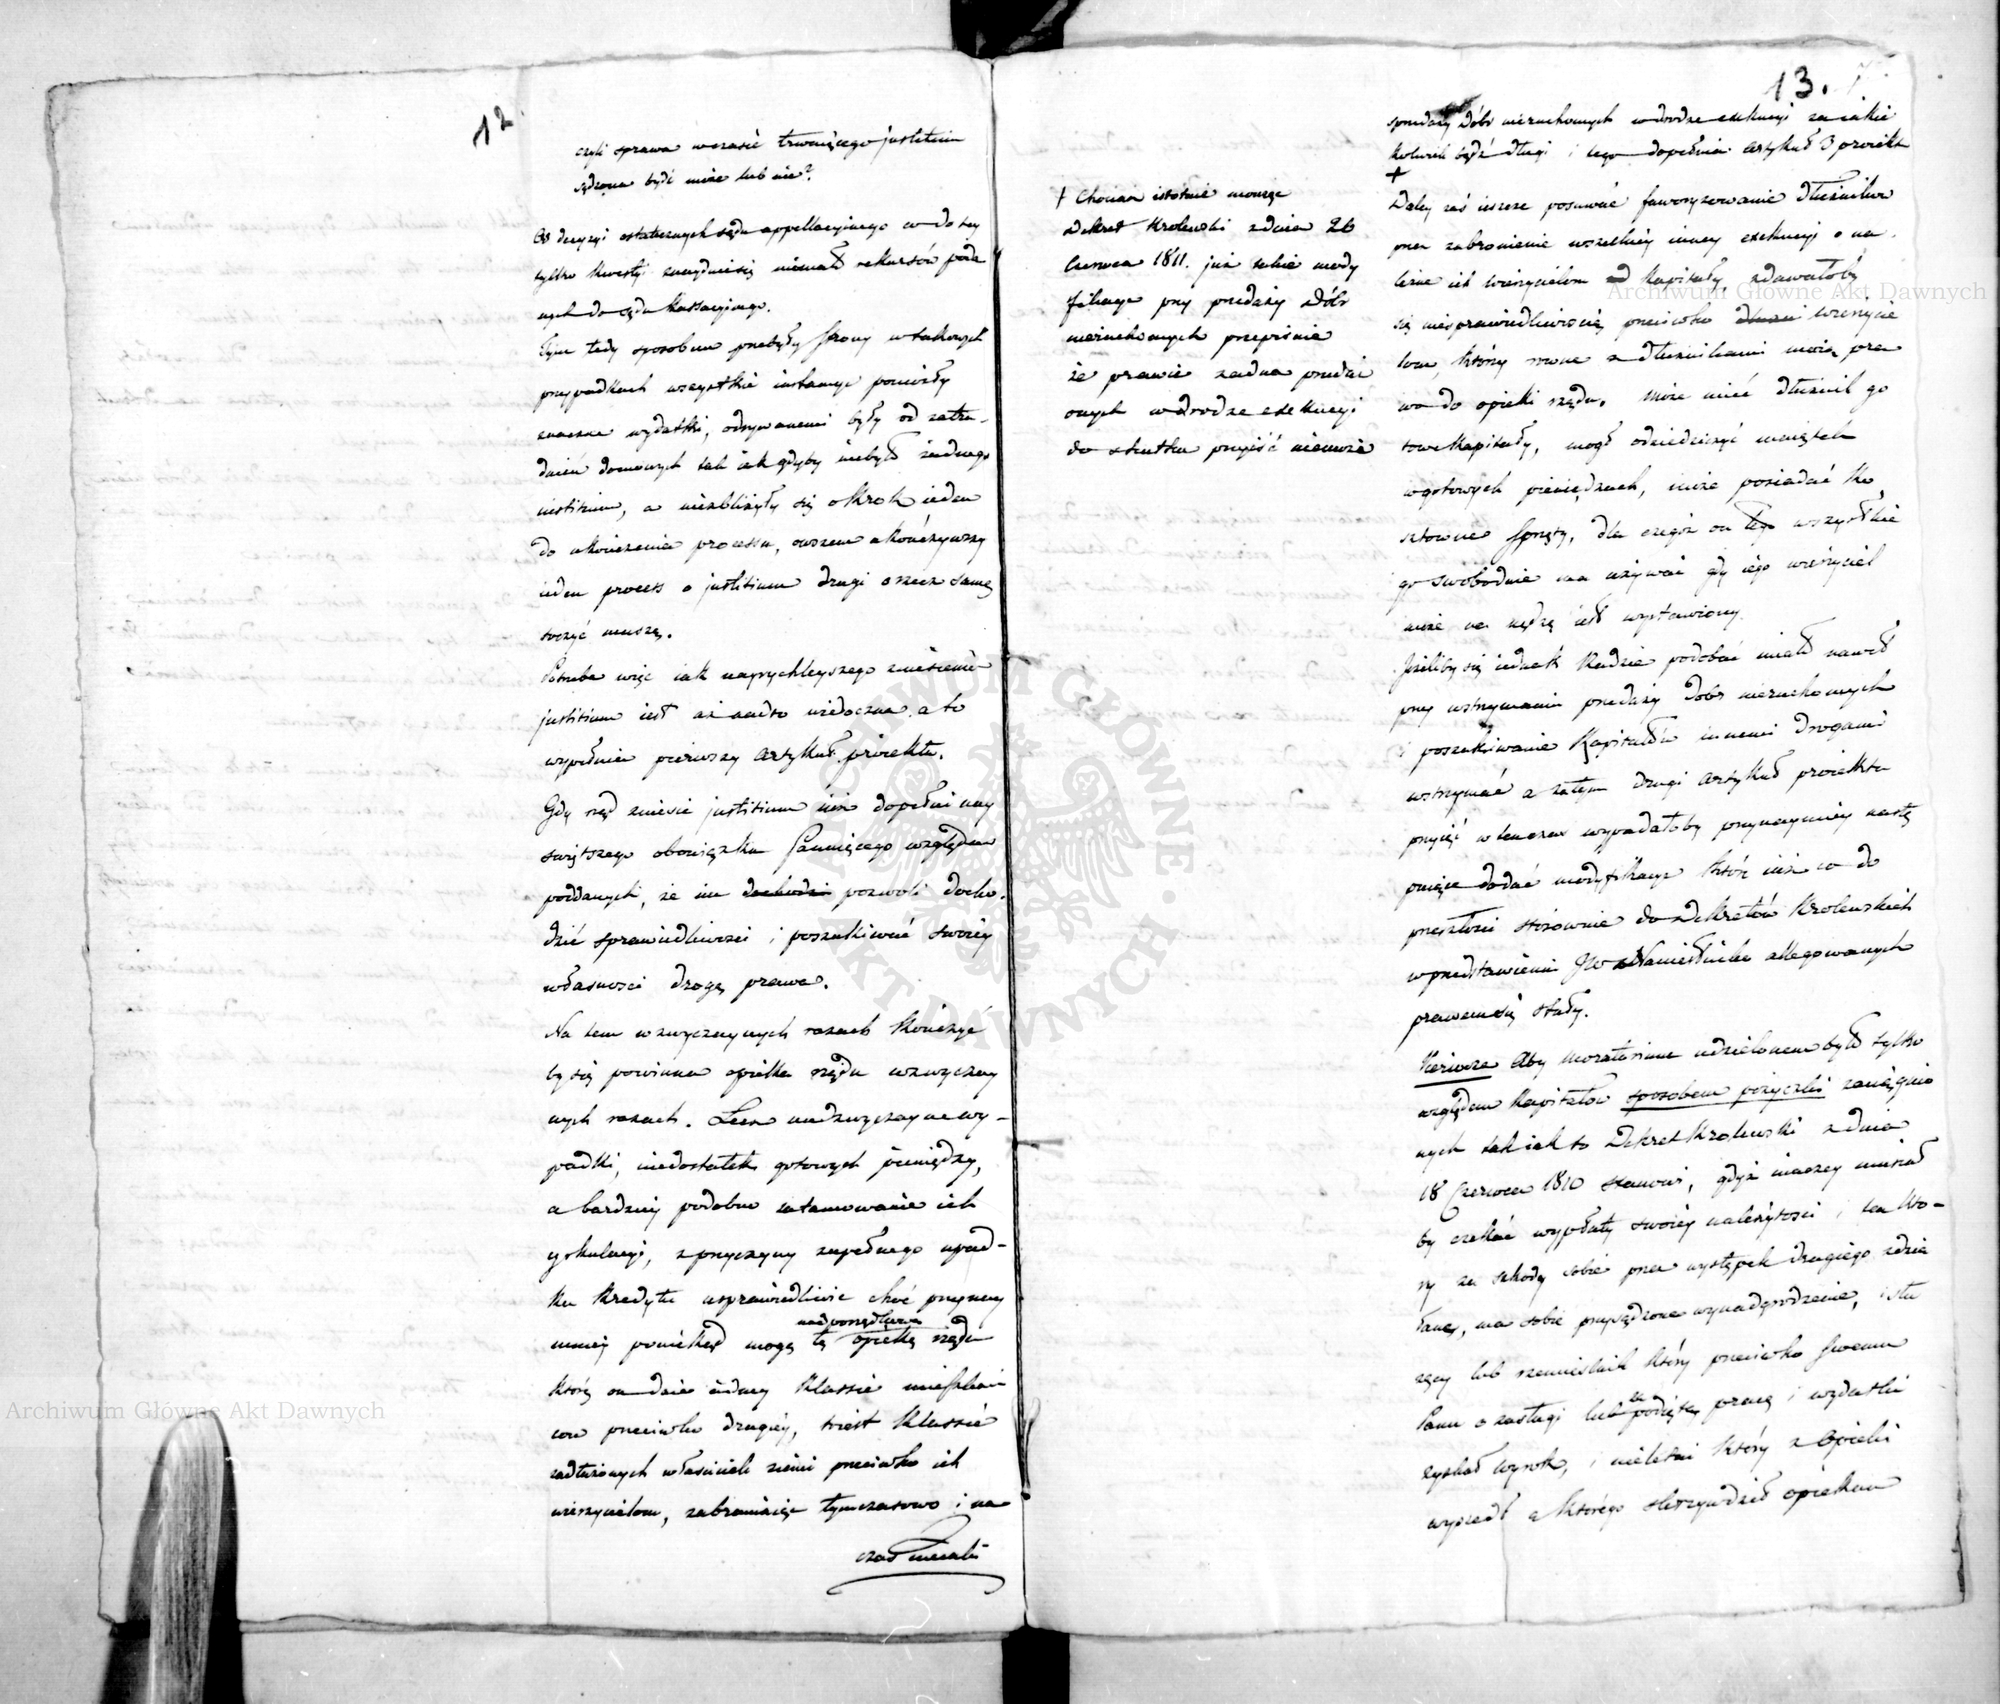 12.
czyli sprawa wczasie trwaiącego justitium
sądzona być może lub nie?
Od decyzyi ostatecznych sądu appellacyinego co do tey
tylko kwestyi znayduie się niemało rekursów poda
nych do sądu kassacyinego.
Tym tedy sposobem przebyły strony w takowych
przypadkach wszystkie instancye poniosły
znaczne wydatki, odrywanemi były od zatru-
dnień domowych tak iak gdyby niebyło żadnego
justitium, a niezbliżyły się o krok ieden
do ukończenia processu, owszem ukończywszy
ieden process o justitium drugi o rzecz samą
toczyć muszą.
Potrzeba więc iak nayrychleyszego zniesienia
justitium iest aż nadto widoczna, a to
wypełnia pierwszy artykuł proiektu.
Gdy rząd zniesie justitium iuż dopełni nay
świętszego obowiązku Panuiącego względem
poddanych, że im dochodzi pozwoli docho-
dzić sprawiedliwości i poszukiwać swoiéy
własności drogą prawa.
Na tem w zwyczaynych razach kończyć
by się powinna opieka rządu w zwyczay
nych razach. Lecz nadzwyczayne wy-
padki, niedostatek gotowych pieniędzy,
a bardziéy podobno zatamowanie ich
cyrkulacyi, z przyczyny zupełnego upad-
ku kredytu usprawiedliwić choć przynay
mniéy poniekąd mogą tę opiekę rządu
którą on daie iedney klassie mieszkań
ców przeciwko drugiéy, to iest klassie
zadłużonych właścicieli ziemi przeciwko ich
wierzycielom, zabraniaiąc tymczasowo i na
czas
13.
sprzedaży dóbr nieruchomych w drodze exekucyi za iakie
kolwiek bądź długi i tego dopełnia artykuł 3 proiektu
+
+ Chociaż istotnie maiąc
Dekret Krolewski z dnia 26
Czerwca 1811. już takie mody
fikacye przy przedaży dóbr
nieruchomych przepisuie
że prawie żadna przedaż
onych w drodze exekucyi
do skutku przyiść niemoże
Daley zaś ieszcze posuwać faworyzowanie dłużników
przez zabronienie wszelkiéy inney exekucyi o na
leżne ich wierzycielom kapitały, zdawałoby
się niesprawiedliwością przeciwko wierzycie
lom, którzy równe z dłużnikami maią pra
wo do opieki rządu. Może mieć dłużnik go
towe kapitały, mógł odziedziczyć maiątek
w gotowych pieniędzach, może posiadać ko
sztowne sprzęty, dla czegóż on tego wszystkie
go swobodnie ma używać gdy iego wierzyciel
może na nędzę iest wystawiony.
Jeżeliby się iednak Radzie podobać miało nawet
przy wstrzymaniu przedaży dóbr nieruchomych
i poszukiwanie kapitałów innemi drogami
wstrzymać a zatym drugi artykuł proiektu
przyiąć w tenczas wypadałoby przynaymniey nastę
puiące dodać modyfikacye które iuż co do
przeszłości stósownie do Dekretów Krolewskich
w przedstawieniu allegowanych
prawem się stały.
Pierwsze Aby moratorium udzielonem było tylko
względem kapitałów sposobem pożyczki zaciągnio
nych tak iak to Dekret Krolewski z dnia
18 Czerwca 1810 stanowi, gdyż inaczey musiał
by czekać wypłaty swoiéy należytości i ten któ-
ry za szkody sobie przez występek drugiego zdzia
łane, ma sobie przysądzone wynadgrodzenie, i słu
żący lub rzemieślnik który przeciwko swemu
Panu o zasługi lub za podiętą pracę i wydatki
zyskał wyrok, i nieletni który z opieki
wyszedł a którego skrzywdził opiekun
Archiwum Główne Akt Dawnych
Archiwum Główne Akt Dawnych
ARCHIWUM GŁÓWNE AKT DAWNYCH